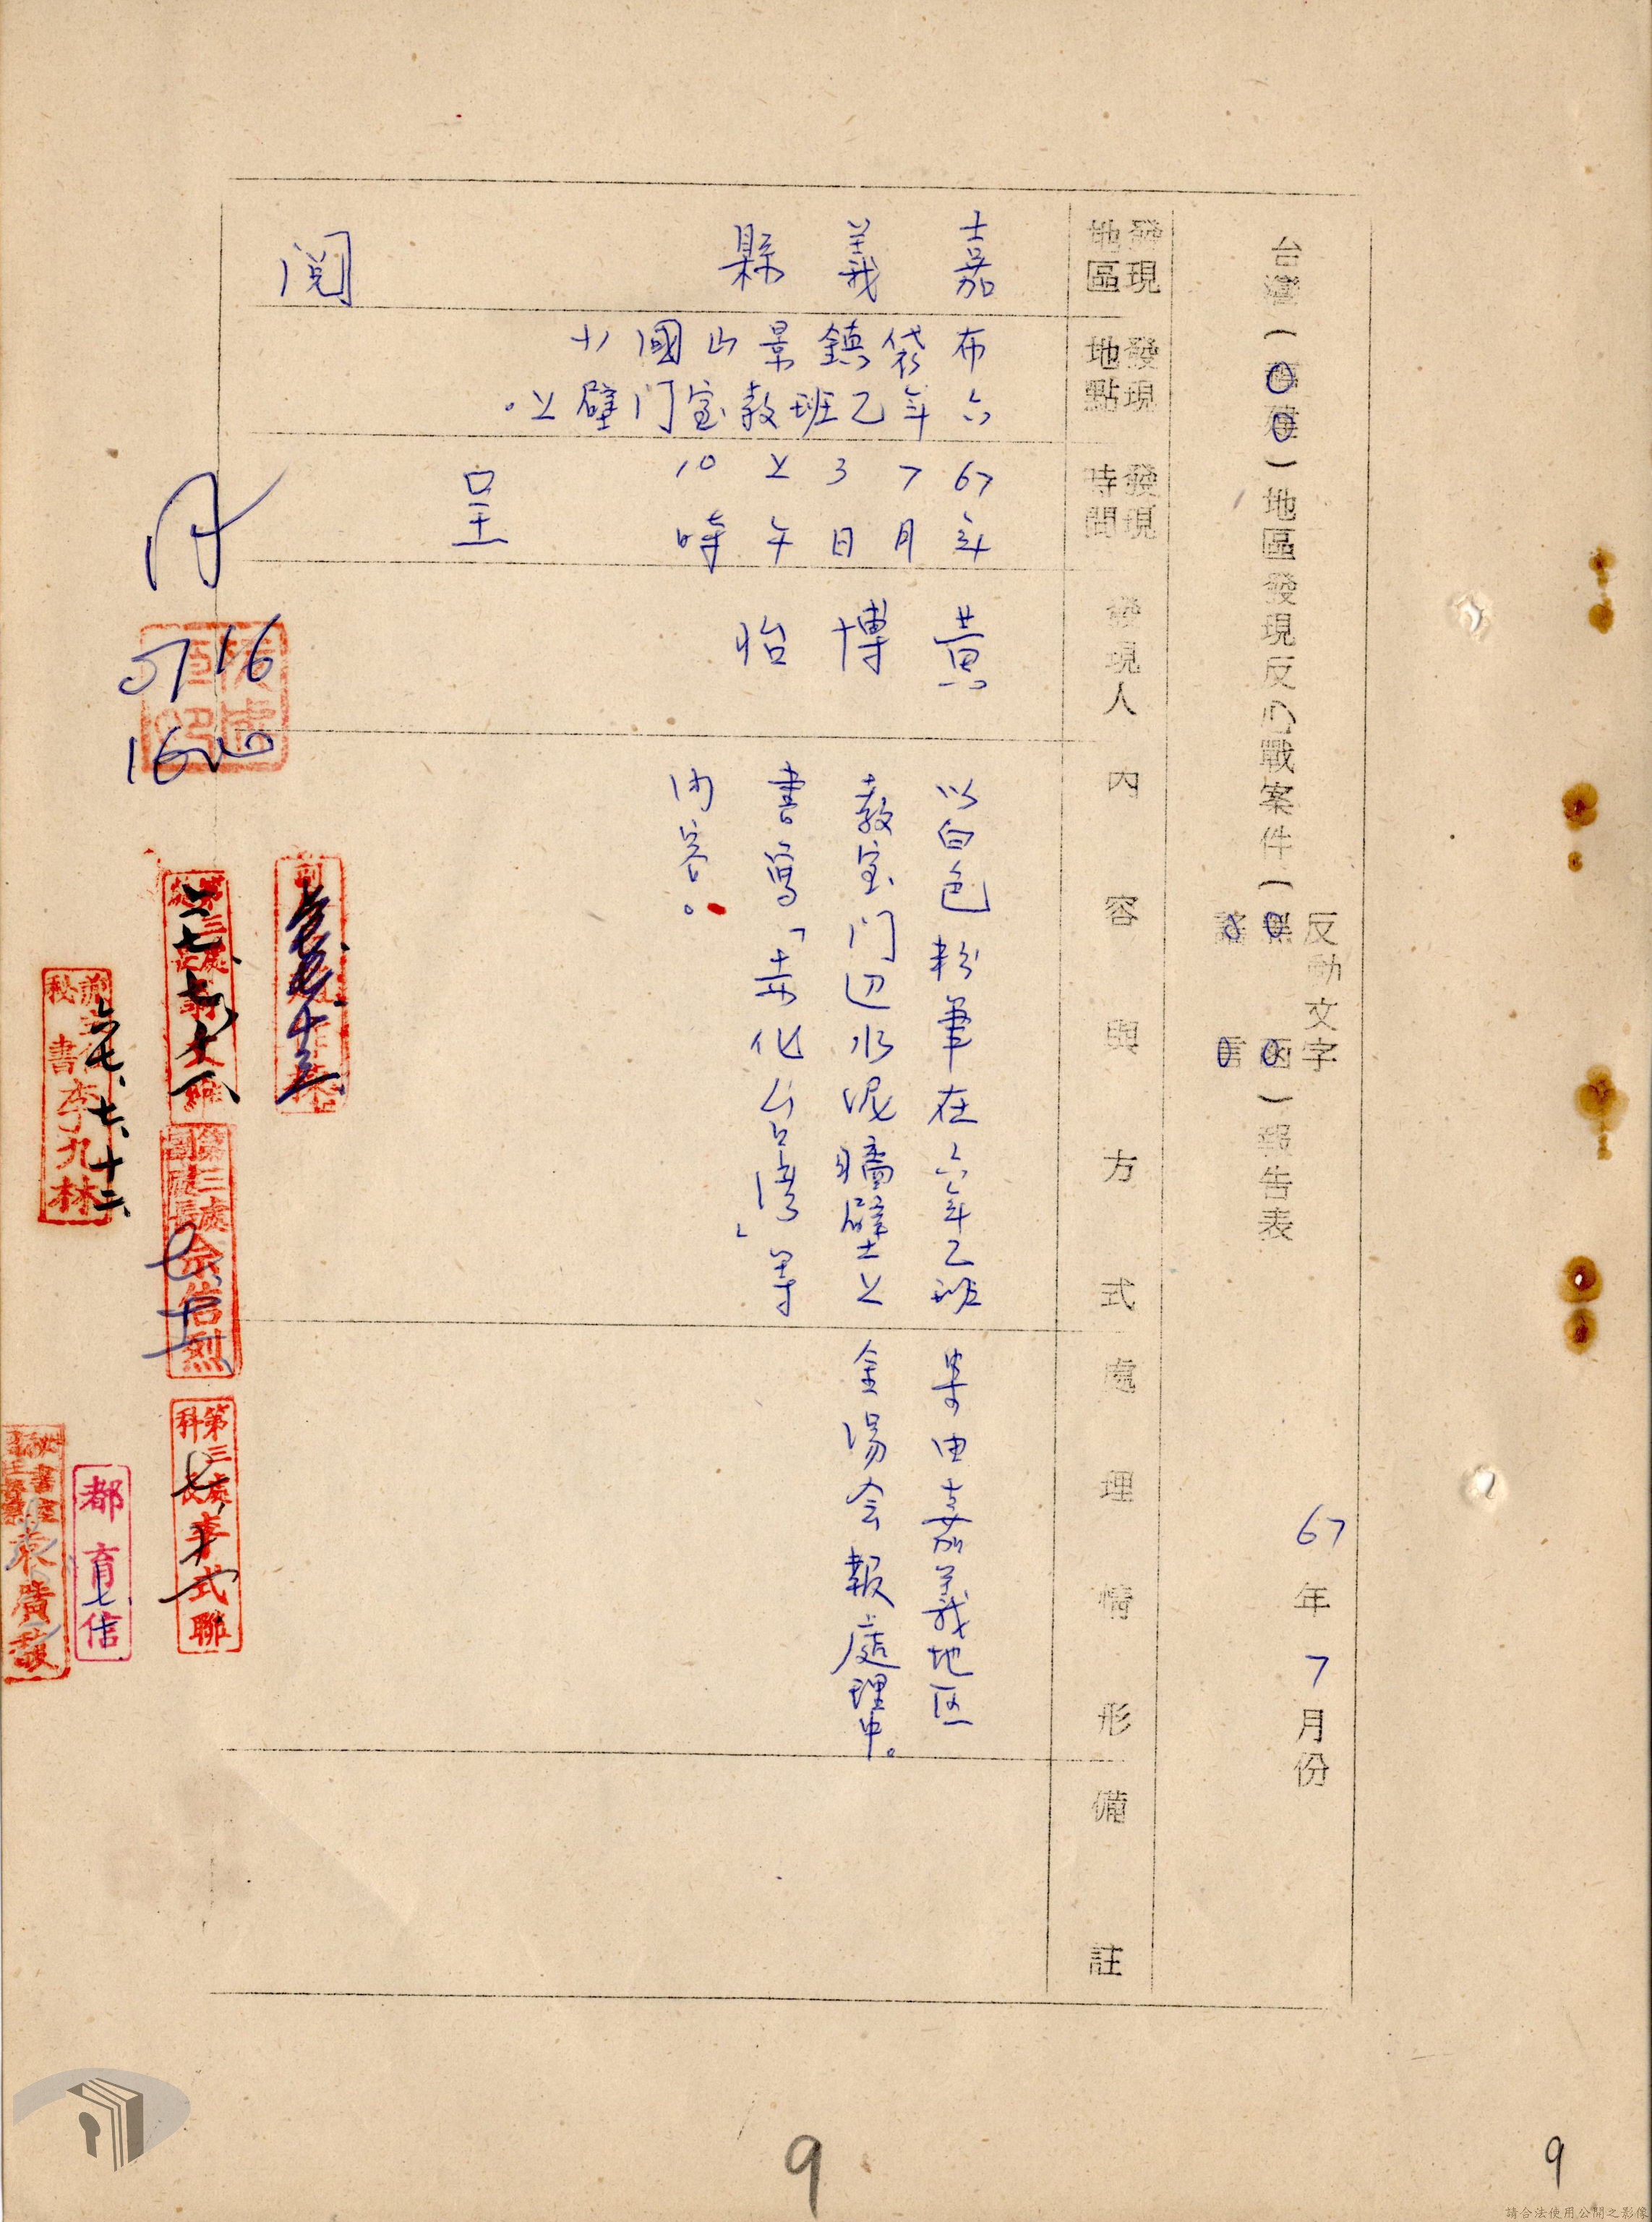 台灣(福建)地區發現反心戰案件(
反動文字
黑函
謠言
)報告表
67年7月份
發現地區
發現地點
發現時間
發現人
內容與方式
處理情形
備註
嘉義縣
布袋鎮景山國小
六年乙班教室門壁上。
67年7月3日上午10時
黃博怡
以白色粉筆在六年乙班
教室門边水泥牆壁上
書寫「赤化台湾」等
內容。
案由嘉義地区
金湯会報處理中。
呈
閱
7/16
1620
第三處處長
六七、七、十二
秘書李九林
六七、七、十二、
第三處副處長佘信烈
第三處科長李式聯
都育信
袁廣馥
9
9
請合法使用公開之影像